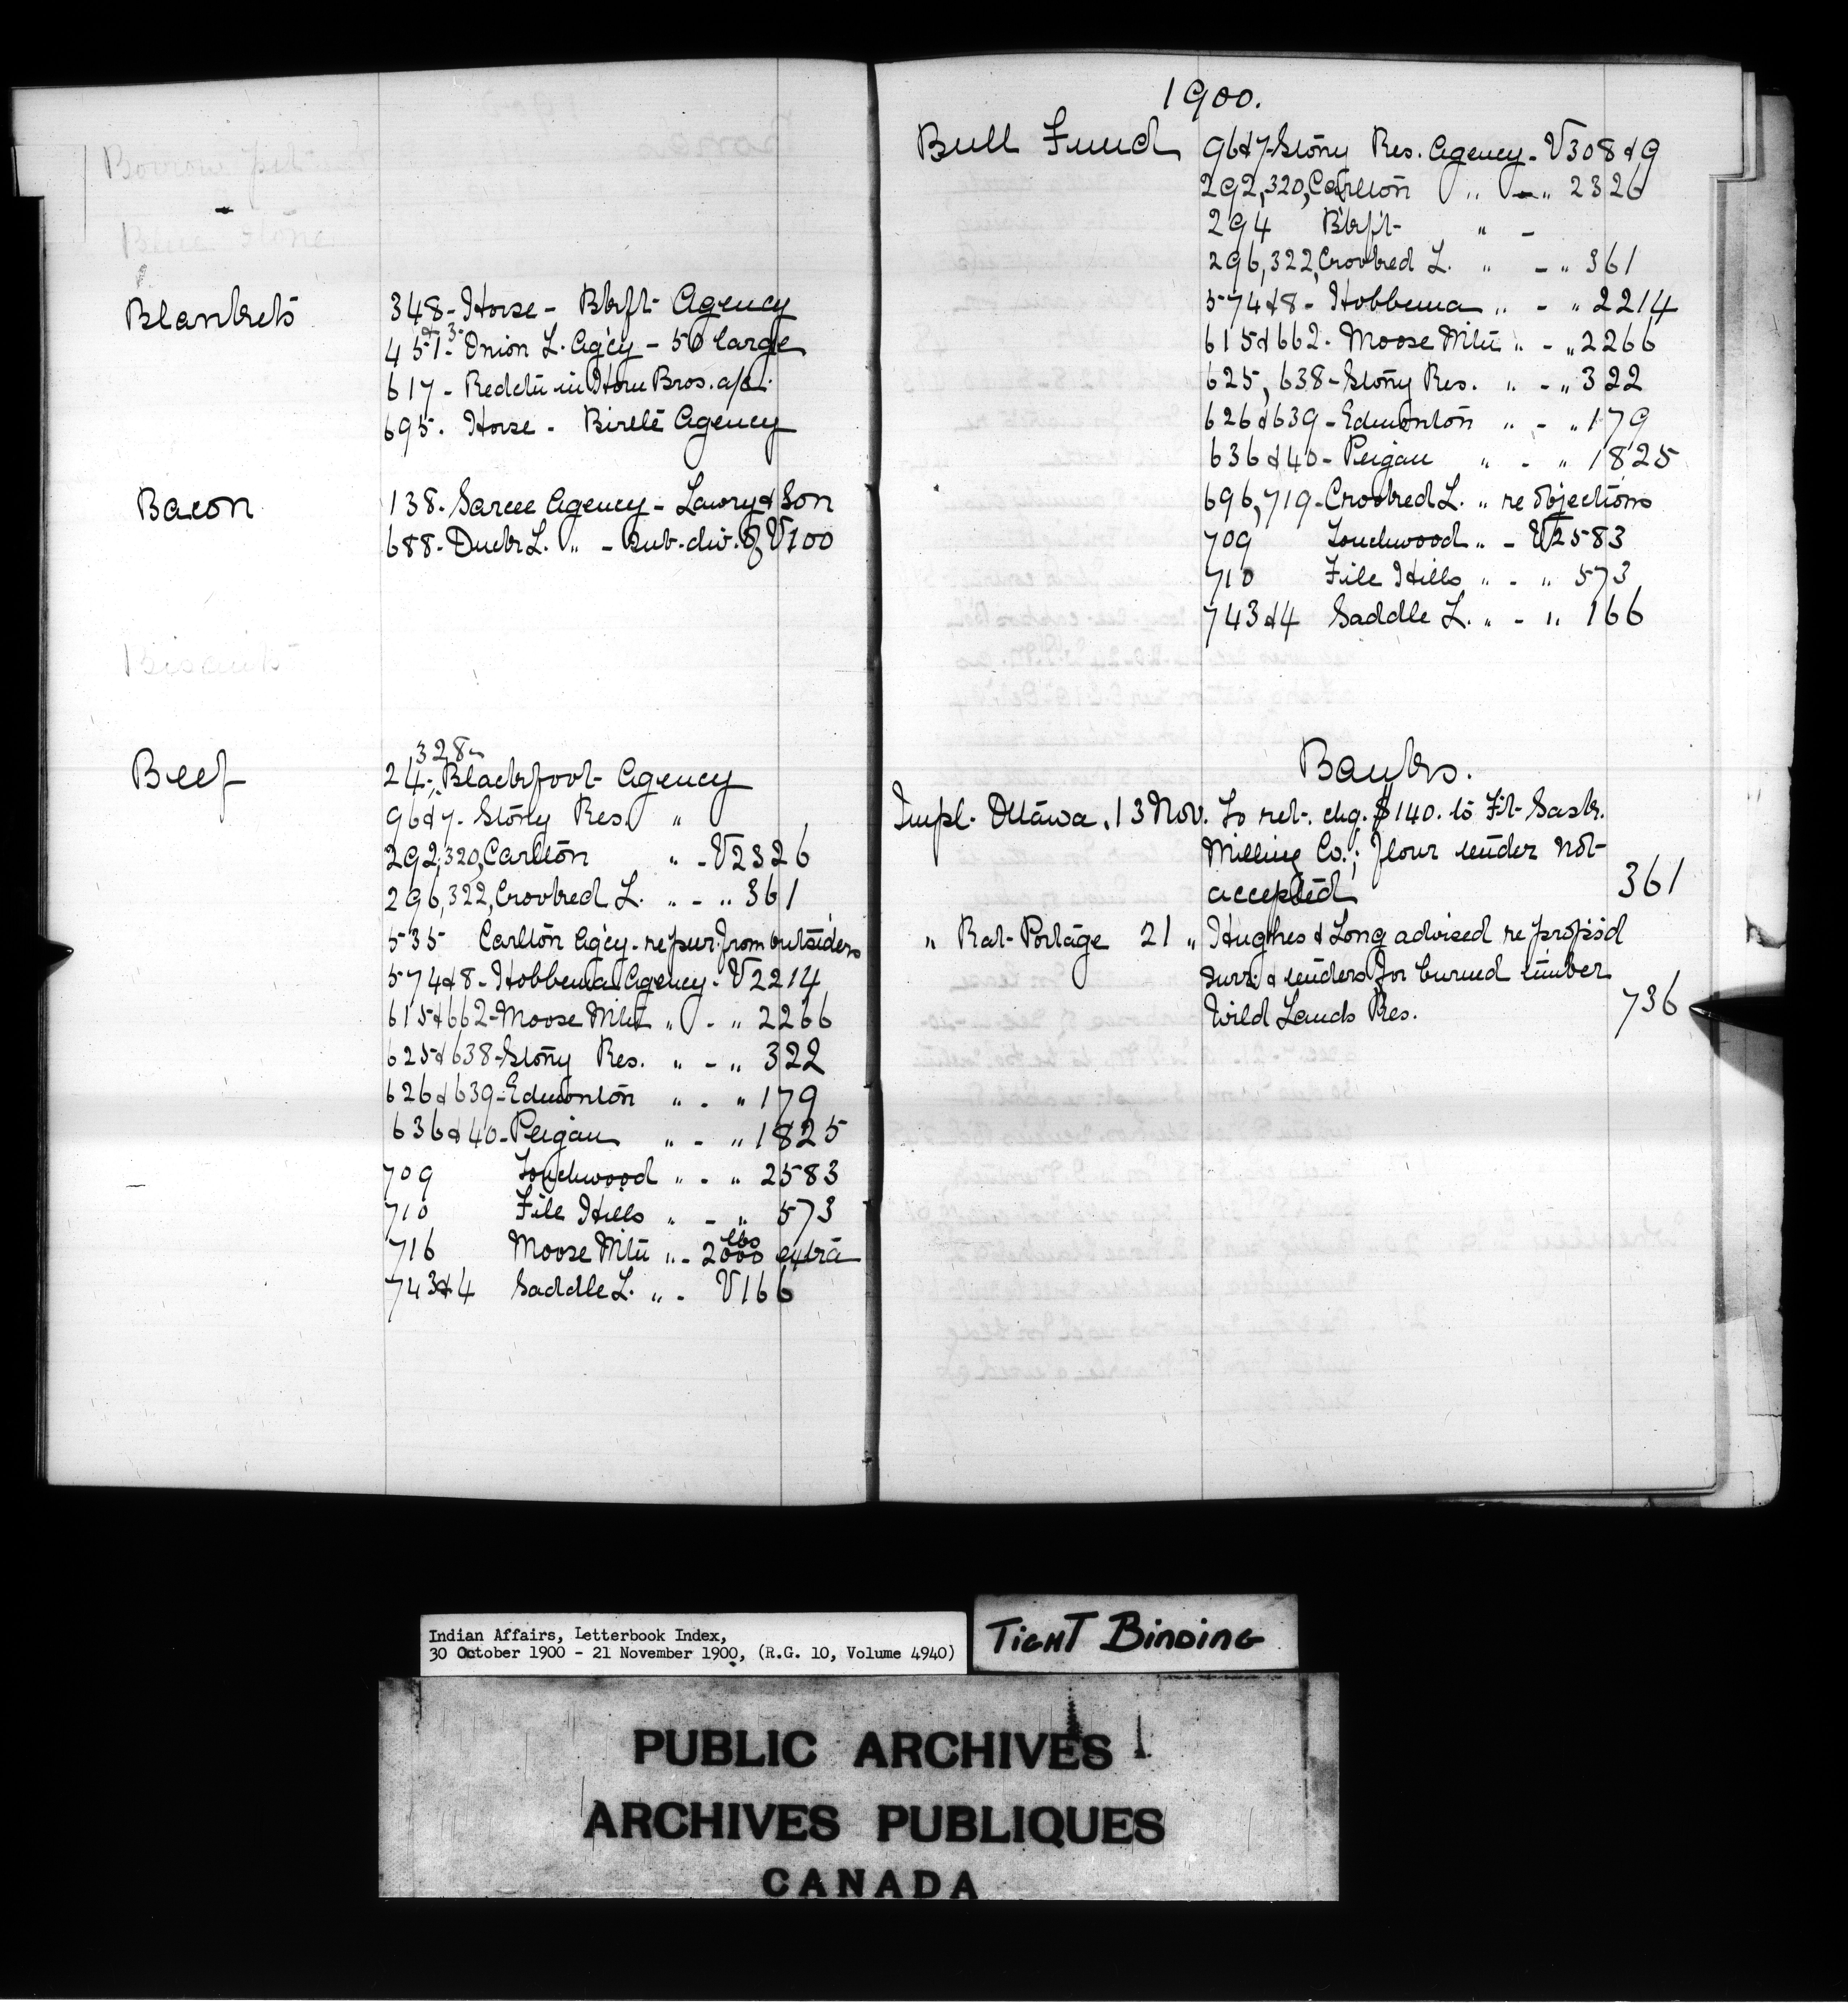 Borrow pit
Blue stone
Blankets 348 - Horse - Bkft Agency
451 & 3 - Onion L. Ag'cy - 50 large
617 - Redct'n in Howe Bros. a/c.
695. Horse - Birtle Agency
Bacon 138. Sarcee Agency - Lowry & Son
688 - Duck L. " - Sub-div. of V100
Biscuits
Beef 24, 328 - Blackfoot Agency
96 & 7 - Stony Res. "
292, 320, Carlton " - V2326
296, 322, Crooked L. " - " 361
535 Carlton Ag'cy - re pur. from outsiders
574 & 8 - Hobbema Agency - V2214
615 & 662 - Moose Mtn " - " 2266
625 & 638 - Stony Res. " - " 322
626 & 639 - Edmonton " - " 179
636 & 40 - Peigan " - " 1825
709 Touchwood " - " 2583
710 File Hills " - " 573
716 Moose Mtn " - 2000 lbs extra
743 & 4 Saddle L. " - V166
1900.
Bull Fund 96 & 7 - Stony Res. Agency - V308 & 9
292, 320, Carlton " - " 2326
294 Bkft " -
296, 322, Crooked L. " - " 361
574 & 8 - Hobbema " - " 2214
615 & 662 - Moose Mtn " - " 2266
625, 638 - Stony Res. " - " 322
626 & 639 - Edmonton " - " 179
636 & 40 - Peigan " - " 1825
696, 719 - Crooked L. " re objections
709 Touchwood " - V2583
710 File Hills " - " 573
743 & 4 Saddle L. " - " 166
Banks.
Impl. Ottawa, 13 Nov. To ret. chq. $140. to Ft. Sask.
Milling Co.; flour tender not
accepted 361
" Rat Portage 21 " Hughes & Long advised re prop's'd
surr: & tenders for burned timber
Wild Lands Res. 736
Indian Affairs, Letterbook Index,
30 October 1900 - 21 November 1900, (R.G. 10, Volume 4940)
TIGHT BINDING
PUBLIC ARCHIVES
ARCHIVES PUBLIQUES
CANADA